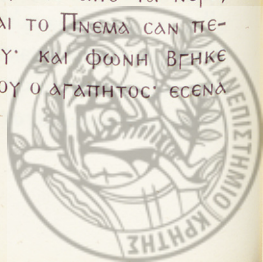 ΑΙ ΤΟ ΠΝΕΜΑ CΑΝ ΠΕ-
Υ· ΚΑΙ ΦΩΝΗ ΒΓΗΚΕ
ΟΥ Ο ΑΓΑΠΗΤΟC· ΕCΕΝΑ
ΑΝΕΠΙΣΤΗΜΙΟ ΚΡΗΤΗΣ